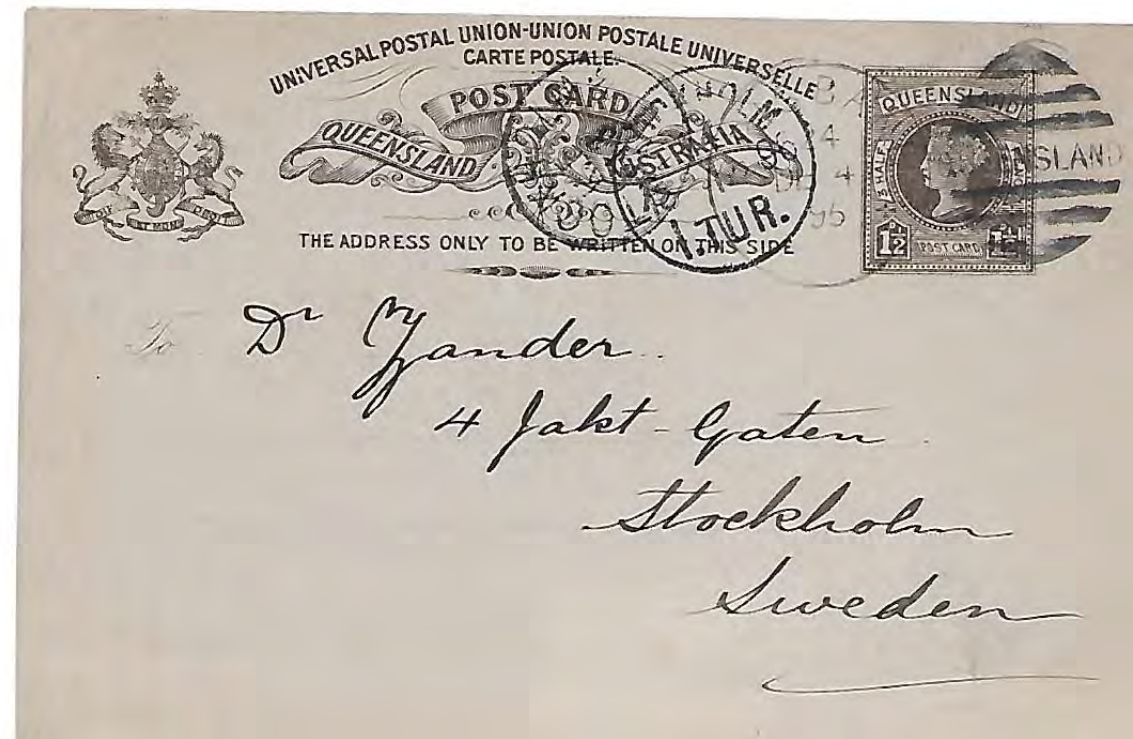 UNIVERSAL POSTAL UNION-UNION POSTALE UNIVERSELLE
CARTE POSTALE.
POST CARD
QUEENSLAND AUSTRALIA
THE ADDRESS ONLY TO BE WRITTEN ON THIS SIDE
QUEENSLAND
1½
POST CARD
1.TUR.
4
95
To Dr Zander
4 Jakt-Gaten
Stockholm
Sweden